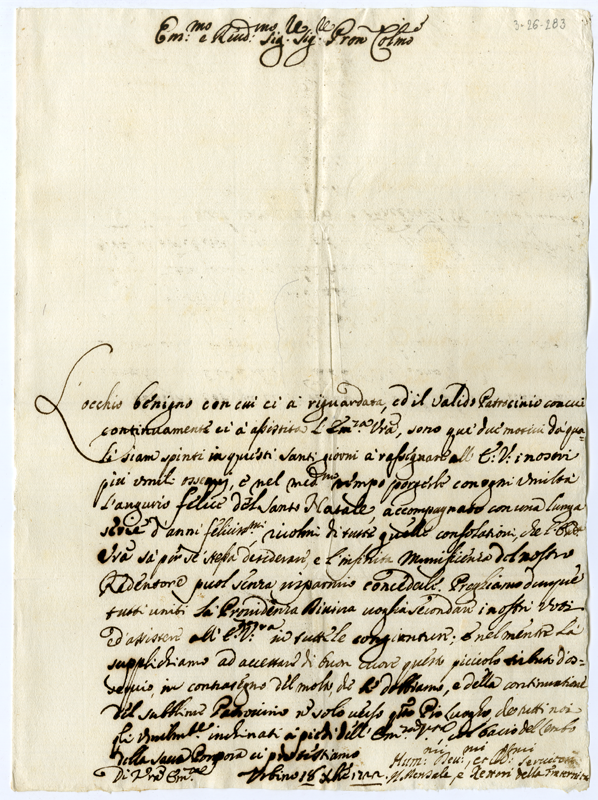 3-26-283
Em:mo e Rev:mo Sig:re Sig:re Pron Colmo
L'occhio benigno con cui ci à riguardata, ed il valido Patrocinio con cui
continuamente ci à assistita l'Em:za Vra, sono que' due motivi da qua=
li siam spinti in questi Santi giorni à rassegnare all' E:V: i nostri
più umili ossequj, e nel med:mo tempo porgerle con ogni umiltà
l'augurio felice del Santo Natale accompagnato con una lunga
serie d'anni felicis:mi, ricolmi di tutte quelle consolazioni, che l'
Vra sà per se stessa desiderare, e l'infinita Munificenza del nostro
Redentore puol senza risparmio concederle. Preghiamo dunque
tutti uniti la Providenza Divina voglia secondare i nostri Voti
d'assistere all' E:V:ra in tutte le congiunture; e nel mentre La
supplichiamo ad accettare di buon cuore questo piccolo tributo d'os=
sequio, in contrasegno del molto, che le dobbiamo, e della continuatione
del sublime Patrocinio nè solo verso qto Pio Luogo, che tutti noi
gli umilmte inchinati à piedi dell' Em:za Vra, col bacio del lembo
della Sacra Porpora ci protestiamo
Di Vra Em:za
Urbino 18 Xbre
Hum:mi Dev:mi, et Servitori